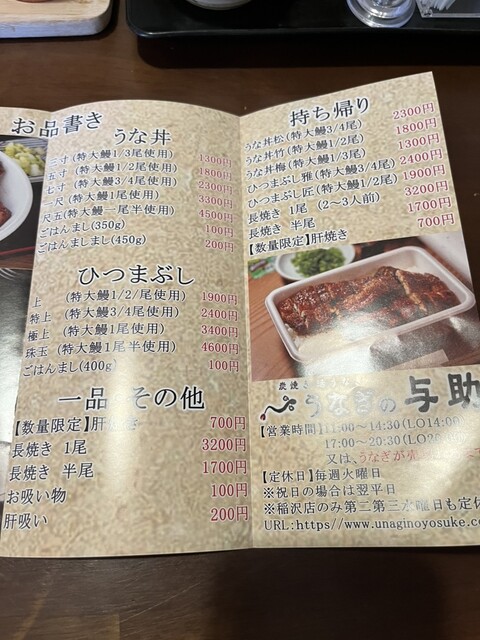 お品書き
うな丼
三寸(特大鰻1/3尾使用) 1300円
五寸(特大鰻1/2尾使用) 1800円
七寸(特大鰻3/4尾使用) 2300円
一尺(特大鰻1尾使用) 3300円
尺五(特大鰻一尾半使用) 4500円
ごはんまし(350g) 100円
ごはんましまし(450g) 200円
ひつまぶし
上 (特大鰻1/2/尾使用) 1900円
特上 (特大鰻3/4尾使用) 2400円
極上 (特大鰻1尾使用) 3400円
珠玉 (特大鰻1尾半使用) 4600円
ごはんまし(400g) 100円
一品 その他
【数量限定】肝焼き 700円
長焼き 1尾 3200円
長焼き 半尾 1700円
お吸い物 100円
肝吸い 200円
持ち帰り
うな丼松(特大鰻3/4尾) 2300円
うな丼竹(特大鰻1/2尾) 1800円
うな丼梅(特大鰻1/3尾) 1300円
ひつまぶし雅(特大鰻3/4尾) 2400円
ひつまぶし匠(特大鰻1/2尾) 1900円
長焼き 1尾 (2〜3人前) 3200円
長焼き 半尾 1700円
【数量限定】肝焼き 700円
炭焼き
うなぎの与助
【営業時間】11:00〜14:30(LO14:00
17:00〜20:30(LO20
又は、うなぎが売
【定休日】毎週火曜日
※祝日の場合は翌平日
※稲沢店のみ第二第三水曜日も定休
URL:https//www.unaginoyosuke.co